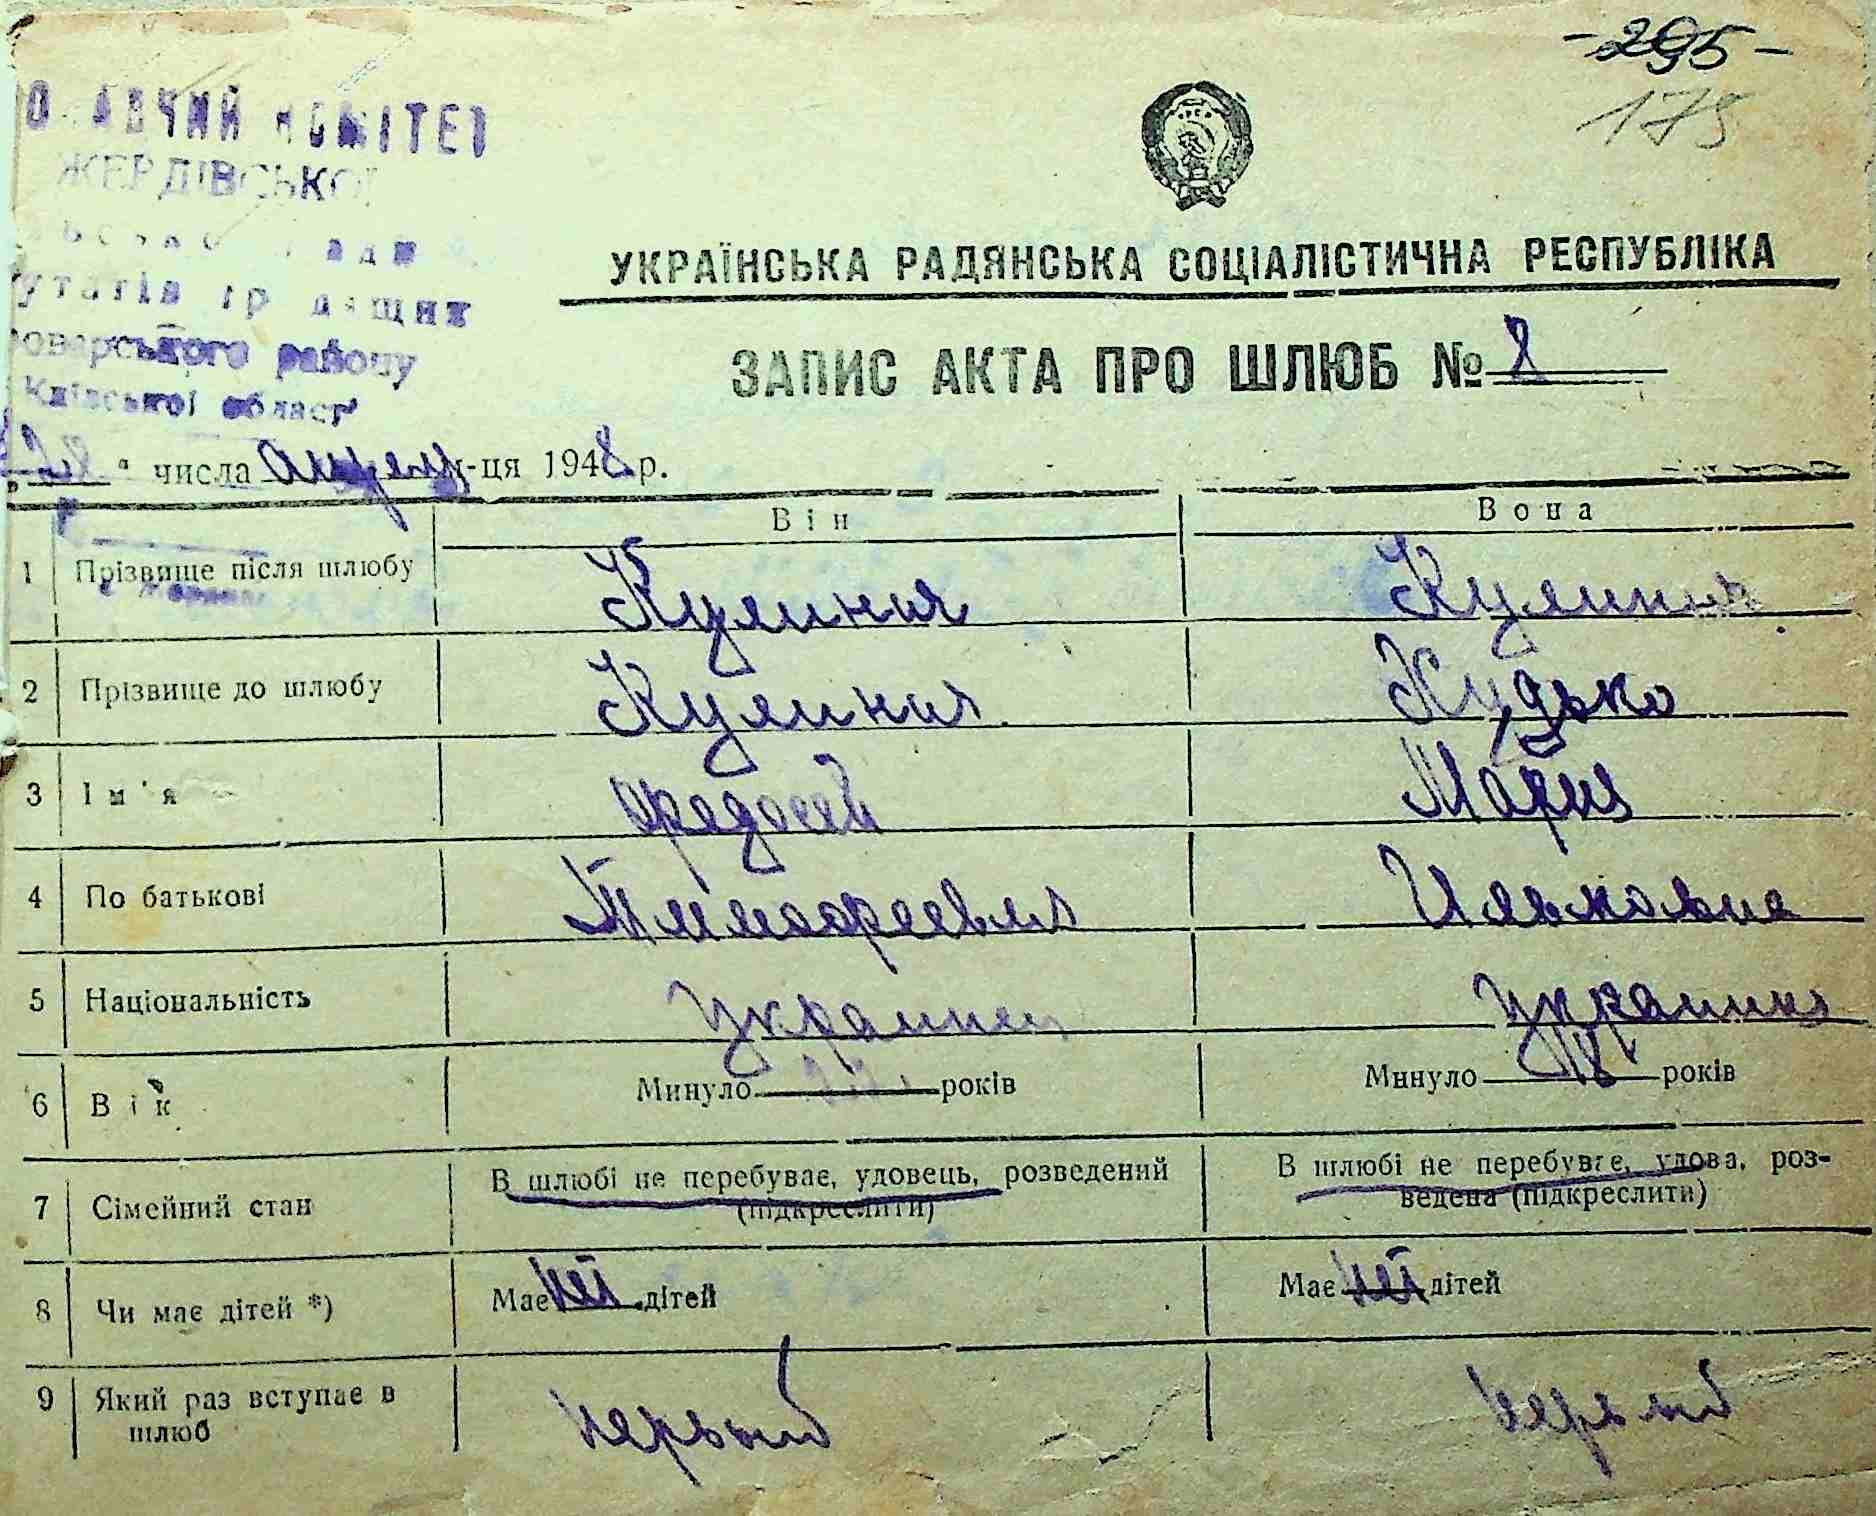 -295-
175
ЖЕРДІВСЬКОЇ
району
Київської област
УКРАЇНСЬКА РАДЯНСЬКА СОЦІАЛІСТИЧНА РЕСПУБЛІКА
ЗАПИС АКТА ПРО ШЛЮБ № 8
„28“ числа апреля м-ця 1948 р.
Він Вона
1 Прізвище після шлюбу Кулинич Кулинич
2 Прізвище до шлюбу Кулинич Кудько
3 Ім'я Федосей Мария
4 По батькові Тимофеевич Ильковна
5 Національність Украинец Украинка
6 Вік Минуло років Минуло 18 років
7 Сімейний стан В шлюбі не перебуває, удовець, розведений (підкреслити) В шлюбі не перебуває, удова, роз-
ведена (підкреслити)
8 Чи має дітей *) Має нет дітей Має нет дітей
9 Який раз вступає в шлюб первый первый